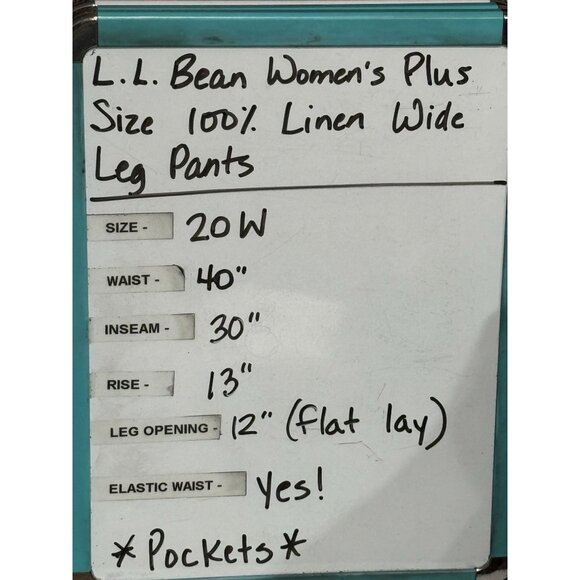 L.L. Bean Women's Plus
Size 100% Linen Wide
Leg Pants
SIZE - 20W
WAIST - 40"
INSEAM - 30"
RISE - 13"
LEG OPENING - 12" (flat lay)
ELASTIC WAIST - Yes!
*Pockets*